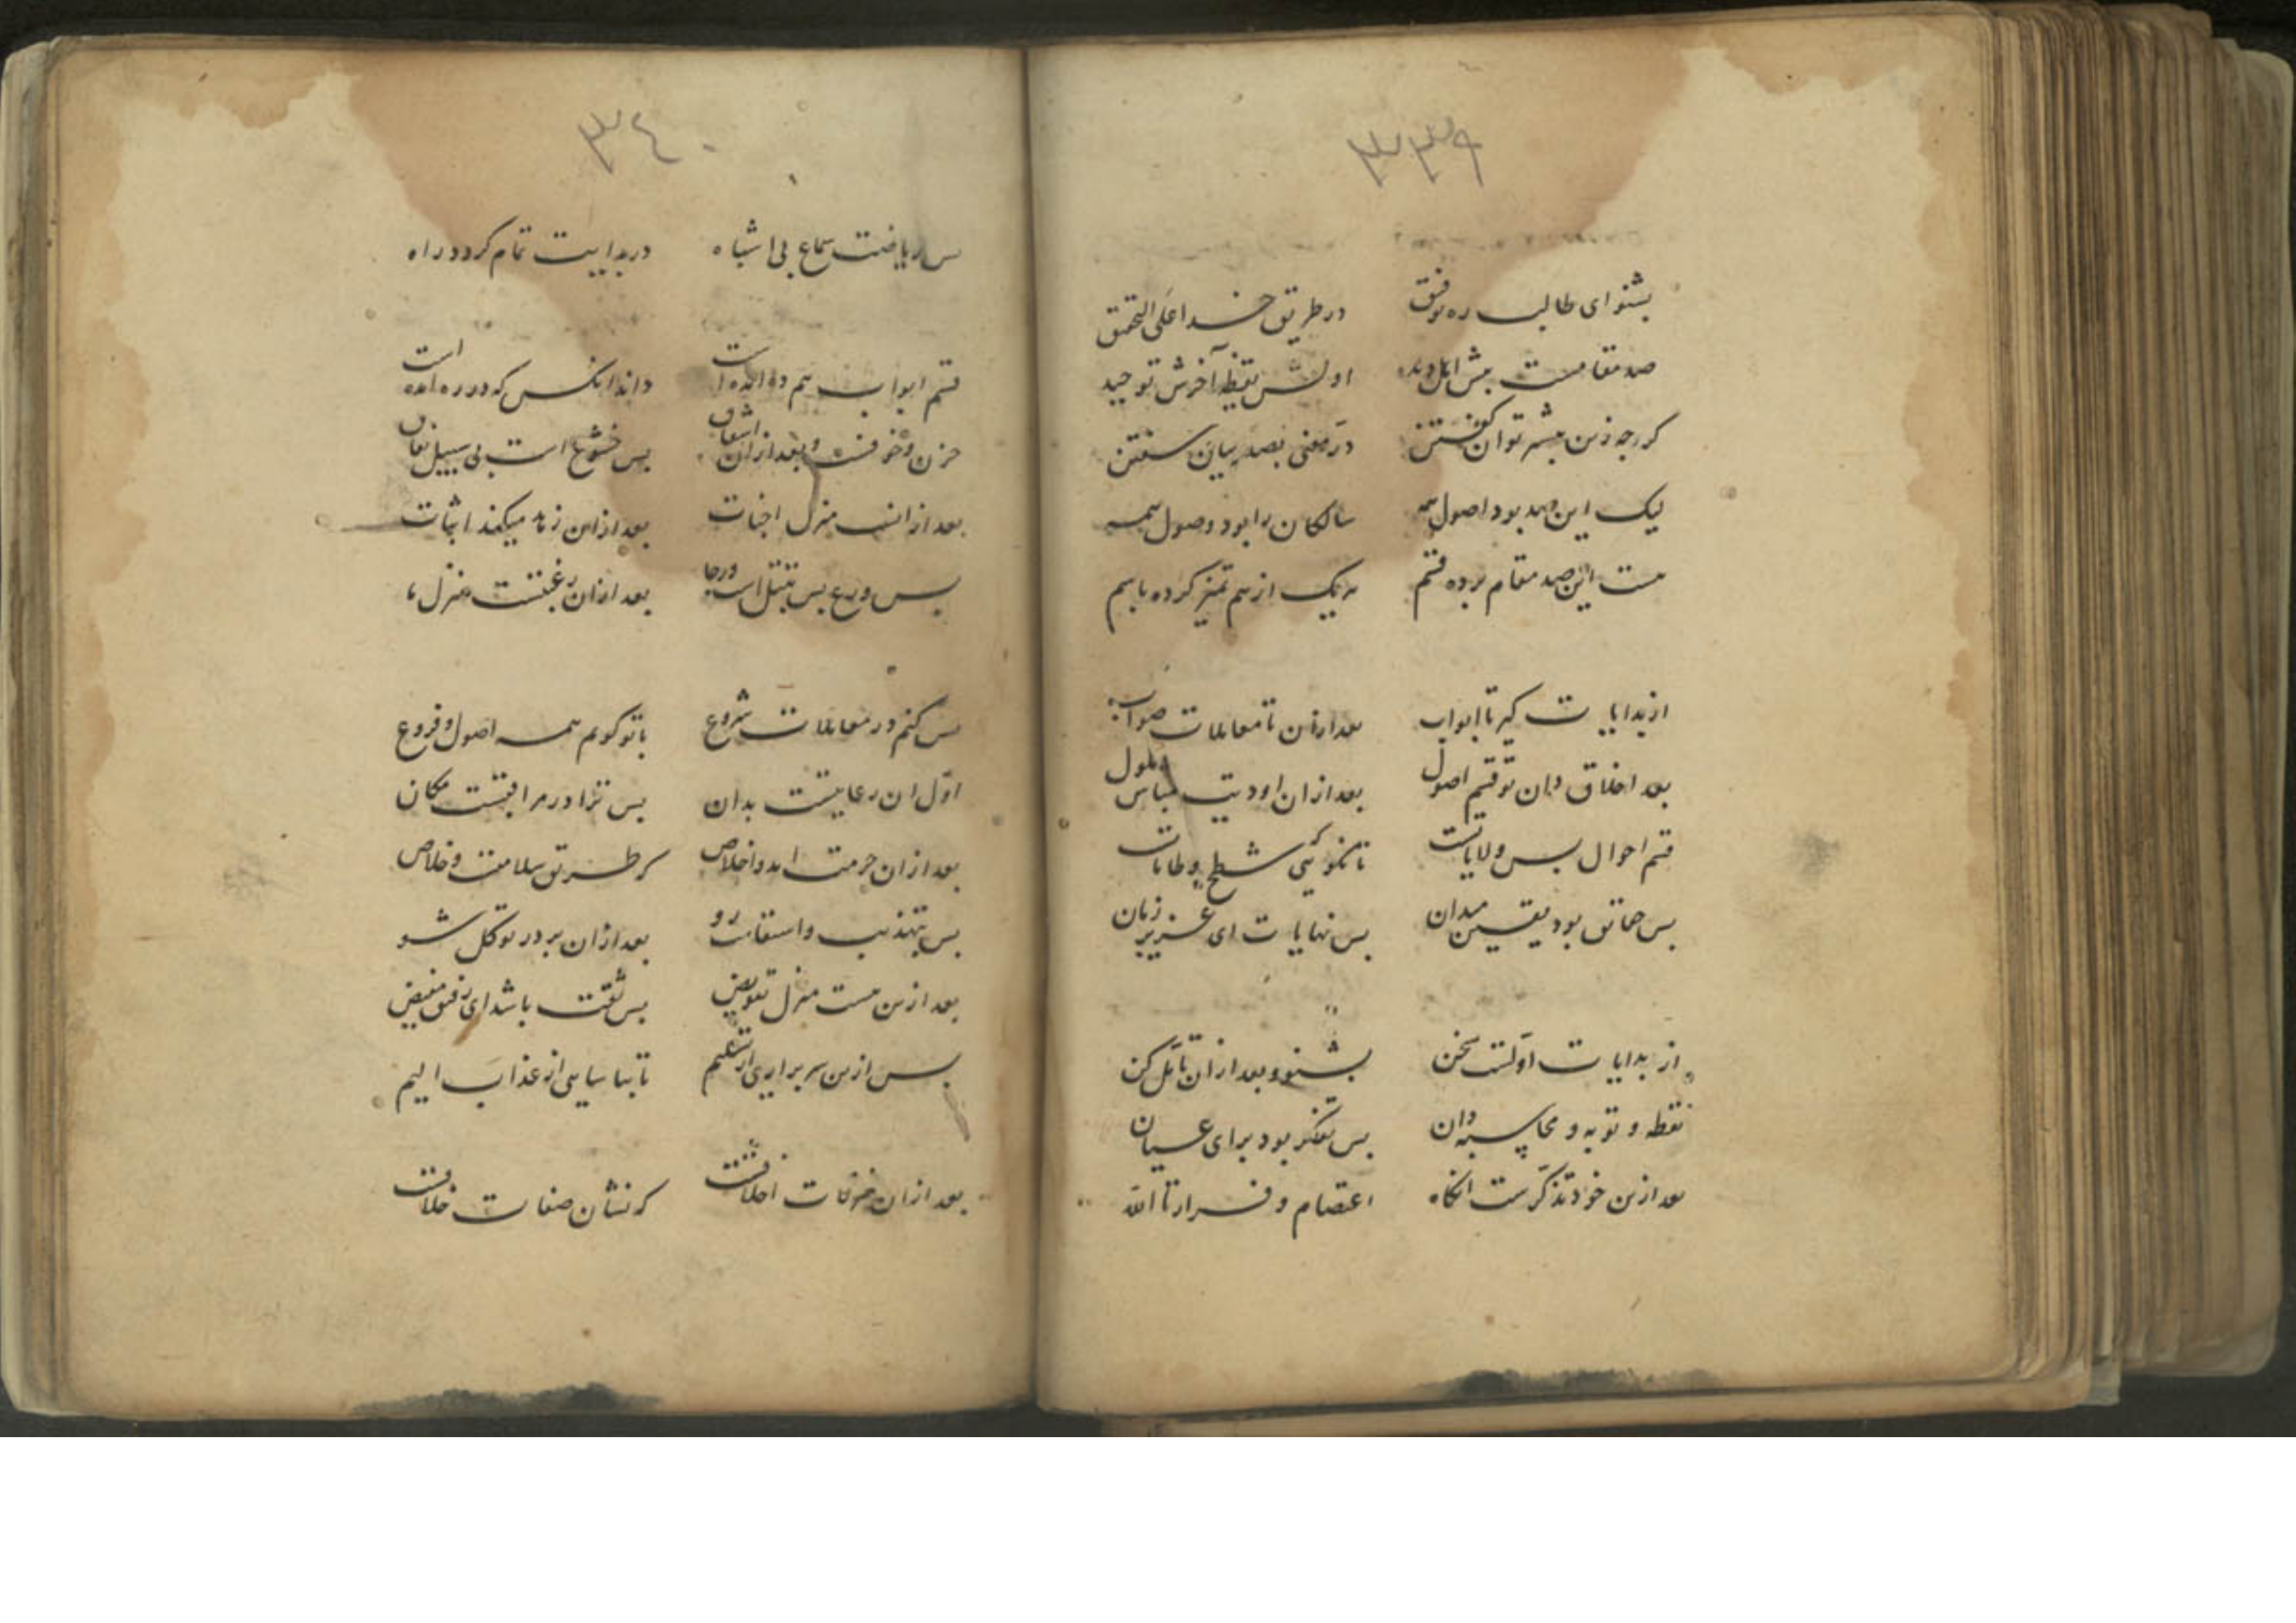 ٣٣٩
بشنو ای طالب ره توفیق در طریق خدا علی التحقیق
صد مقامست پیش اهل دید اولش یقظه آخرش توحید
کرچه زین بیشتر توان کفتن در معنی بصد بیان سفتن
لیک این صد بود اصول همه سالکان را بود وصول همه
هست این صد مقام برده قسم هر یک از هم تمیز کرده باسم
از بدایات کیر تا ابواب بعد ازان تا معاملات صواب
بعد اخلاق دان تو قسم اصول بعد ازان اودیت مباش ملول
قسم احوال بس ولایاتست تا نکویی که شطح و طاماتست
بس حقایق بود یقین میدان بس نهایات ای عزیز زمان
از بدایات اولست سخن بشنو و بعد ازان تأمل کن
یقظه و توبه و محاسبه دان بس تفکر بود برای عیان
بعد ازین خود تذکرست انکاه اعتصام و فرار تا الله
٣٤٠
بس ریاضت سماع بی اشباه در بدایت تمام کردد راه
قسم ابواب هم ده امده است داند انکس که در ره امده است
حزن و خوفست و بعد ازان اشفاق بس خشوع است بی سبیل نفاق
بعد از انست منزل اخبات بعد ازین زهد میکند اثبات
بس ورع بس تبتل است و رجا بعد ازان رغبتست منزل ما
بس کنم در معاملات شروع با تو کویم همه اصول و فروع
اول ان رعایتست بدان بس ترا در مراقبتست مکان
بعد ازان حرمت امد و اخلاص کر طریق سلامت و خلاص
بس بتهذیب و استقامت رو بعد ازان بر در توکل شو
بعد ازین هست منزل تفویض بس ثقت باشد ای رفیق مفیض
بس ازین سر براری از تسلیم تا نیابی از عذاب الیم
بعد ازان غرفات اخلاقست که نشان صفات خلاقست